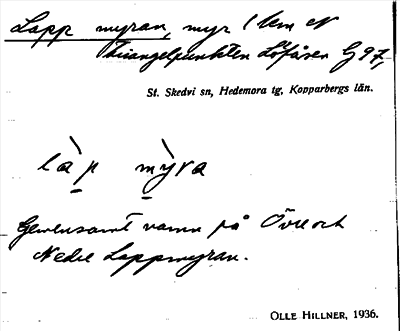 Lappmyran, myr 1 km N
triangelpunkten Löfåsen G 97,
St. Skedvi sn, Hedemora tg, Kopparbergs län.
làp mỳra
Gemensamt namn på Övre och
Nedre Lappmyran.
OLLE HILLNER, 1936.